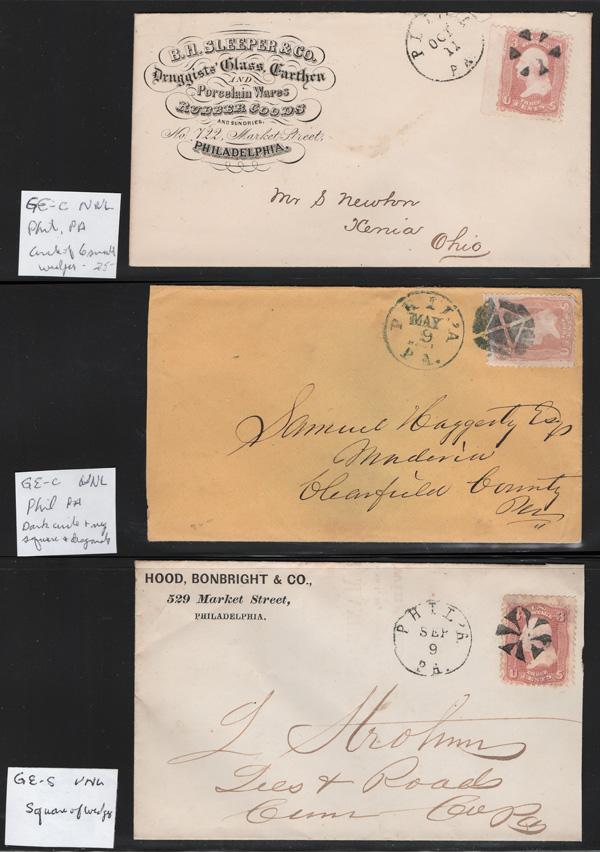 B. H. SLEEPER & CO.
Druggists' Glass, Earthen
AND
Porcelain Wares
RUBBER GOODS
AND SUNDRIES,
No. 722, Market Street,
PHILADELPHIA.
OCT
11
PA
U THREE S
CENTS
Mr S Newton
Xenia
Ohio
GE-C NNL
Phil, PA
circle of 6 small
wedges - 25-
PHIL'A
MAY
9
PA.
Samuel Haggerty Esq
Maderia
Clearfield County
Pa
GE-C NNL
Phil PA
Dark circle + neg
square + diagonals
HOOD, BONBRIGHT & CO.,
529 Market Street,
PHILADELPHIA.
PHIL'A
SEP
9
PA.
3
U CENTS S
Strohm
Lees + Roads
Cum Co Pa
GE-S VNL
Square of wedges